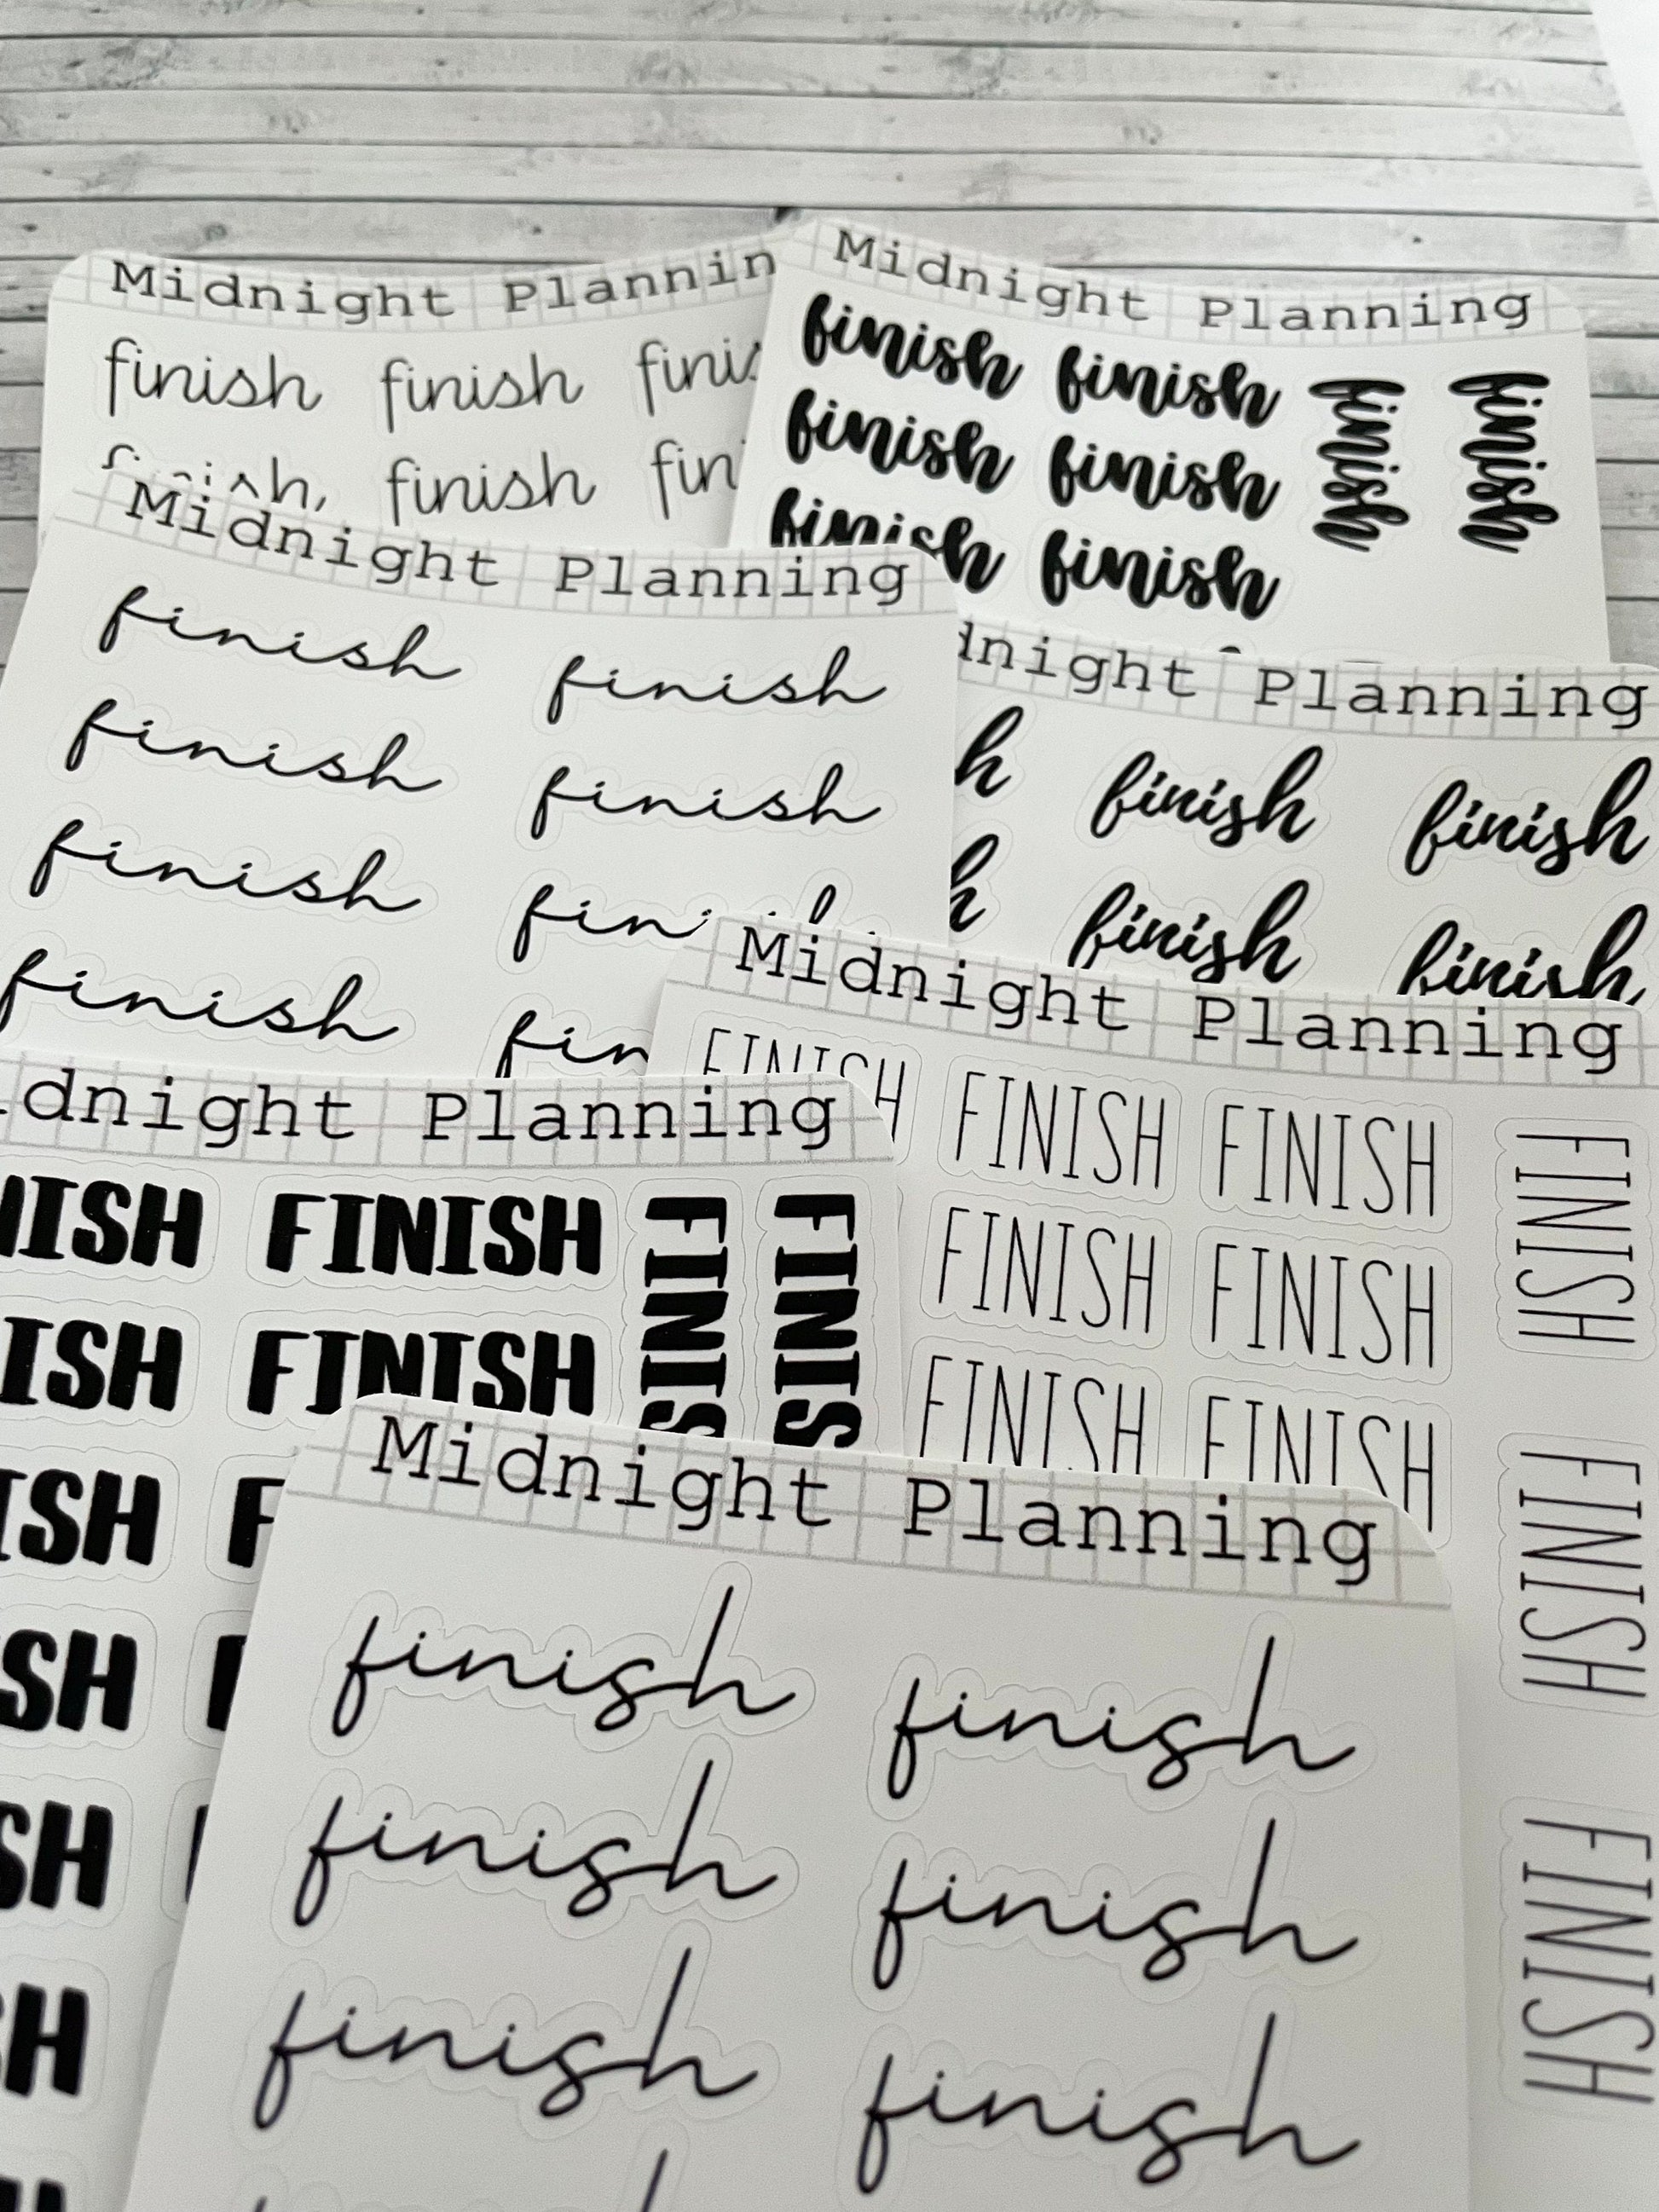 Midnight Plannin
finish finish finis
finish finish fin
Midnight Planning
finish finish finish finish
finish finish
finish finish
Midnight Planning
finish finish
finish finish
finish fin
finish fin
dnight Planning
h finish finish
h finish finish
Midnight Planning
FINISH FINISH FINISH FINISH
FINISH FINISH
FINISH FINISH FINISH
FINISH
dnight Planning
NISH FINISH FINIS FINIS
ISH FINISH
ISH F
SH F
SH
H
Midnight Planning
finish finish
finish finish
finish finish